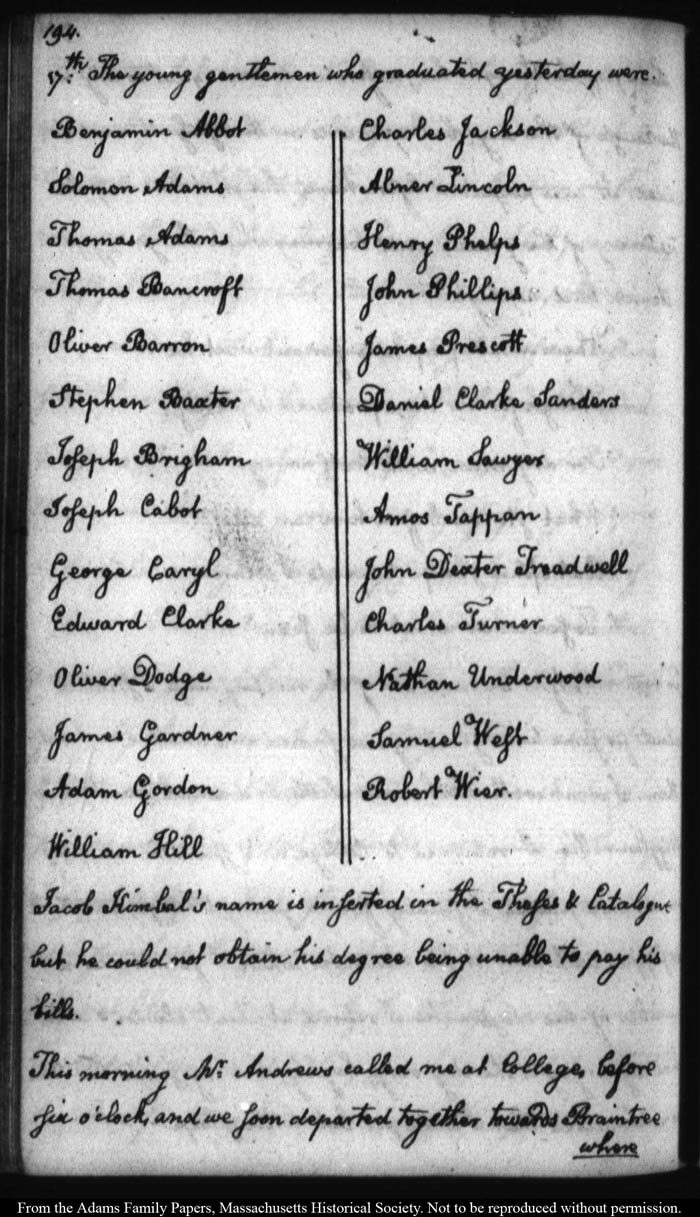 194.
17.th The young gentlemen who graduated yesterday were.
Benjamin Abbot
Solomon Adams
Thomas Adams
Thomas Bancroft
Oliver Barron
Stephen Baxter
Joseph Brigham
Joseph Cabot
George Caryl
Edward Clarke
Oliver Dodge
James Gardner
Adam Gordon
William Hill
Charles Jackson
Abner Lincoln
Henry Phelps
John Phillips
James Prescott
Daniel Clarke Sanders
William Sawyer
Amos Tappan
John Dexter Treadwell
Charles Turner
Nathan Underwood
Samuel West
Robert Wier.
Jacob Kimbal's name is inserted in the Theses & Catalogue
but he could not obtain his degree being unable to pay his
bills.
This morning Mr. Andrews called me at College, before
six o'clock, and we soon departed together towards Braintree
where
From the Adams Family Papers, Massachusetts Historical Society. Not to be reproduced without permission.